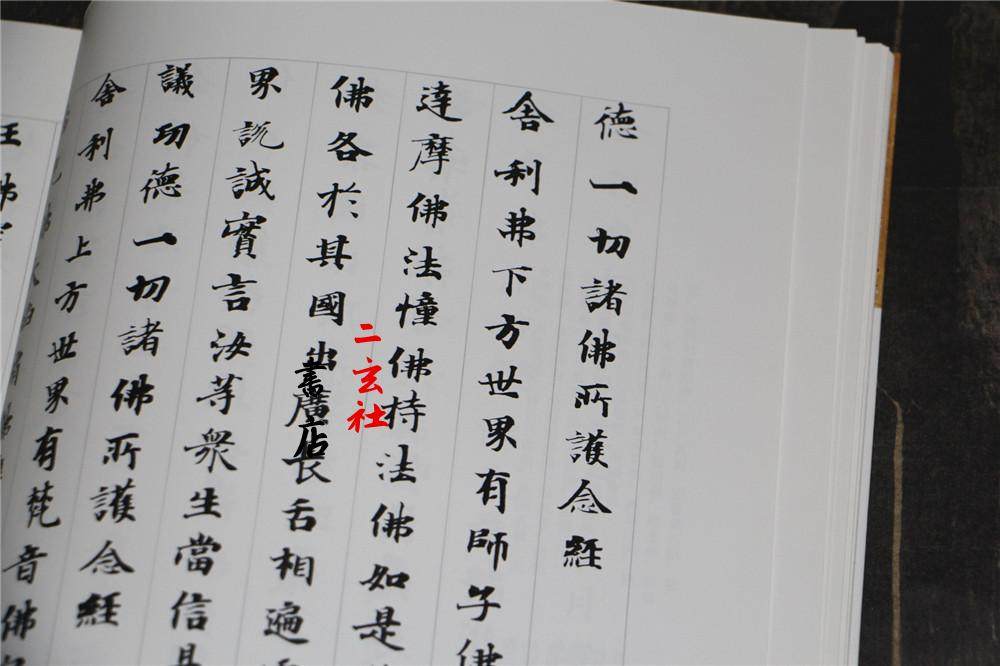 德一切諸佛所護念經
舍利弗下方世界有師子佛
達摩佛法憧佛持法佛如是
佛各於其國出廣長舌相遍
界説誠實言汝等衆生當信是
議功德一切諸佛所護念經
舍利弗上方世界有梵音佛
二玄社
書店